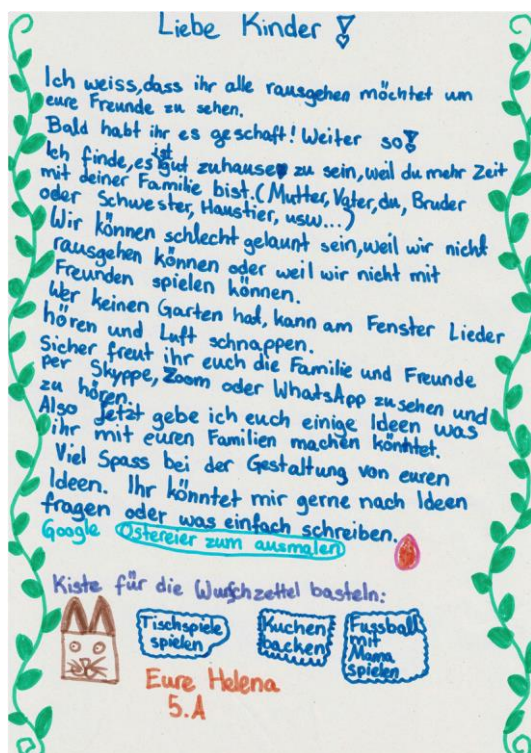 Liebe Kinder !
Ich weiss, dass ihr alle rausgehen möchtet um
eure Freunde zu sehen.
Bald habt ihr es geschaft! Weiter so!
Ich finde, es ist gut zuhause zu sein, weil du mehr Zeit
mit deiner Familie bist. (Mutter, Vater, du, Bruder
oder Schwester, Haustier, usw...)
Wir können schlecht gelaunt sein, weil wir nicht
rausgehen können oder weil wir nicht mit
Freunden spielen können.
Wer keinen Garten hat, kann am Fenster Lieder
hören und Luft schnappen.
Sicher freut ihr euch die Familie und Freunde
per Skyppe, Zoom oder WhatsApp zu sehen und
zu hören.
Also Jetzt gebe ich euch einige Ideen was
ihr mit euren Familien machen könntet.
Viel Spass bei der Gestaltung von euren
Ideen. Ihr könntet mir gerne nach Ideen
fragen oder was einfach schreiben.
Google Ostereier zum ausmalen
Kiste für die Wunschzettel basteln:
Tischspiele
spielen
Kuchen
backen
Fussball
mit
Mama
spielen
Eure Helena
5.A